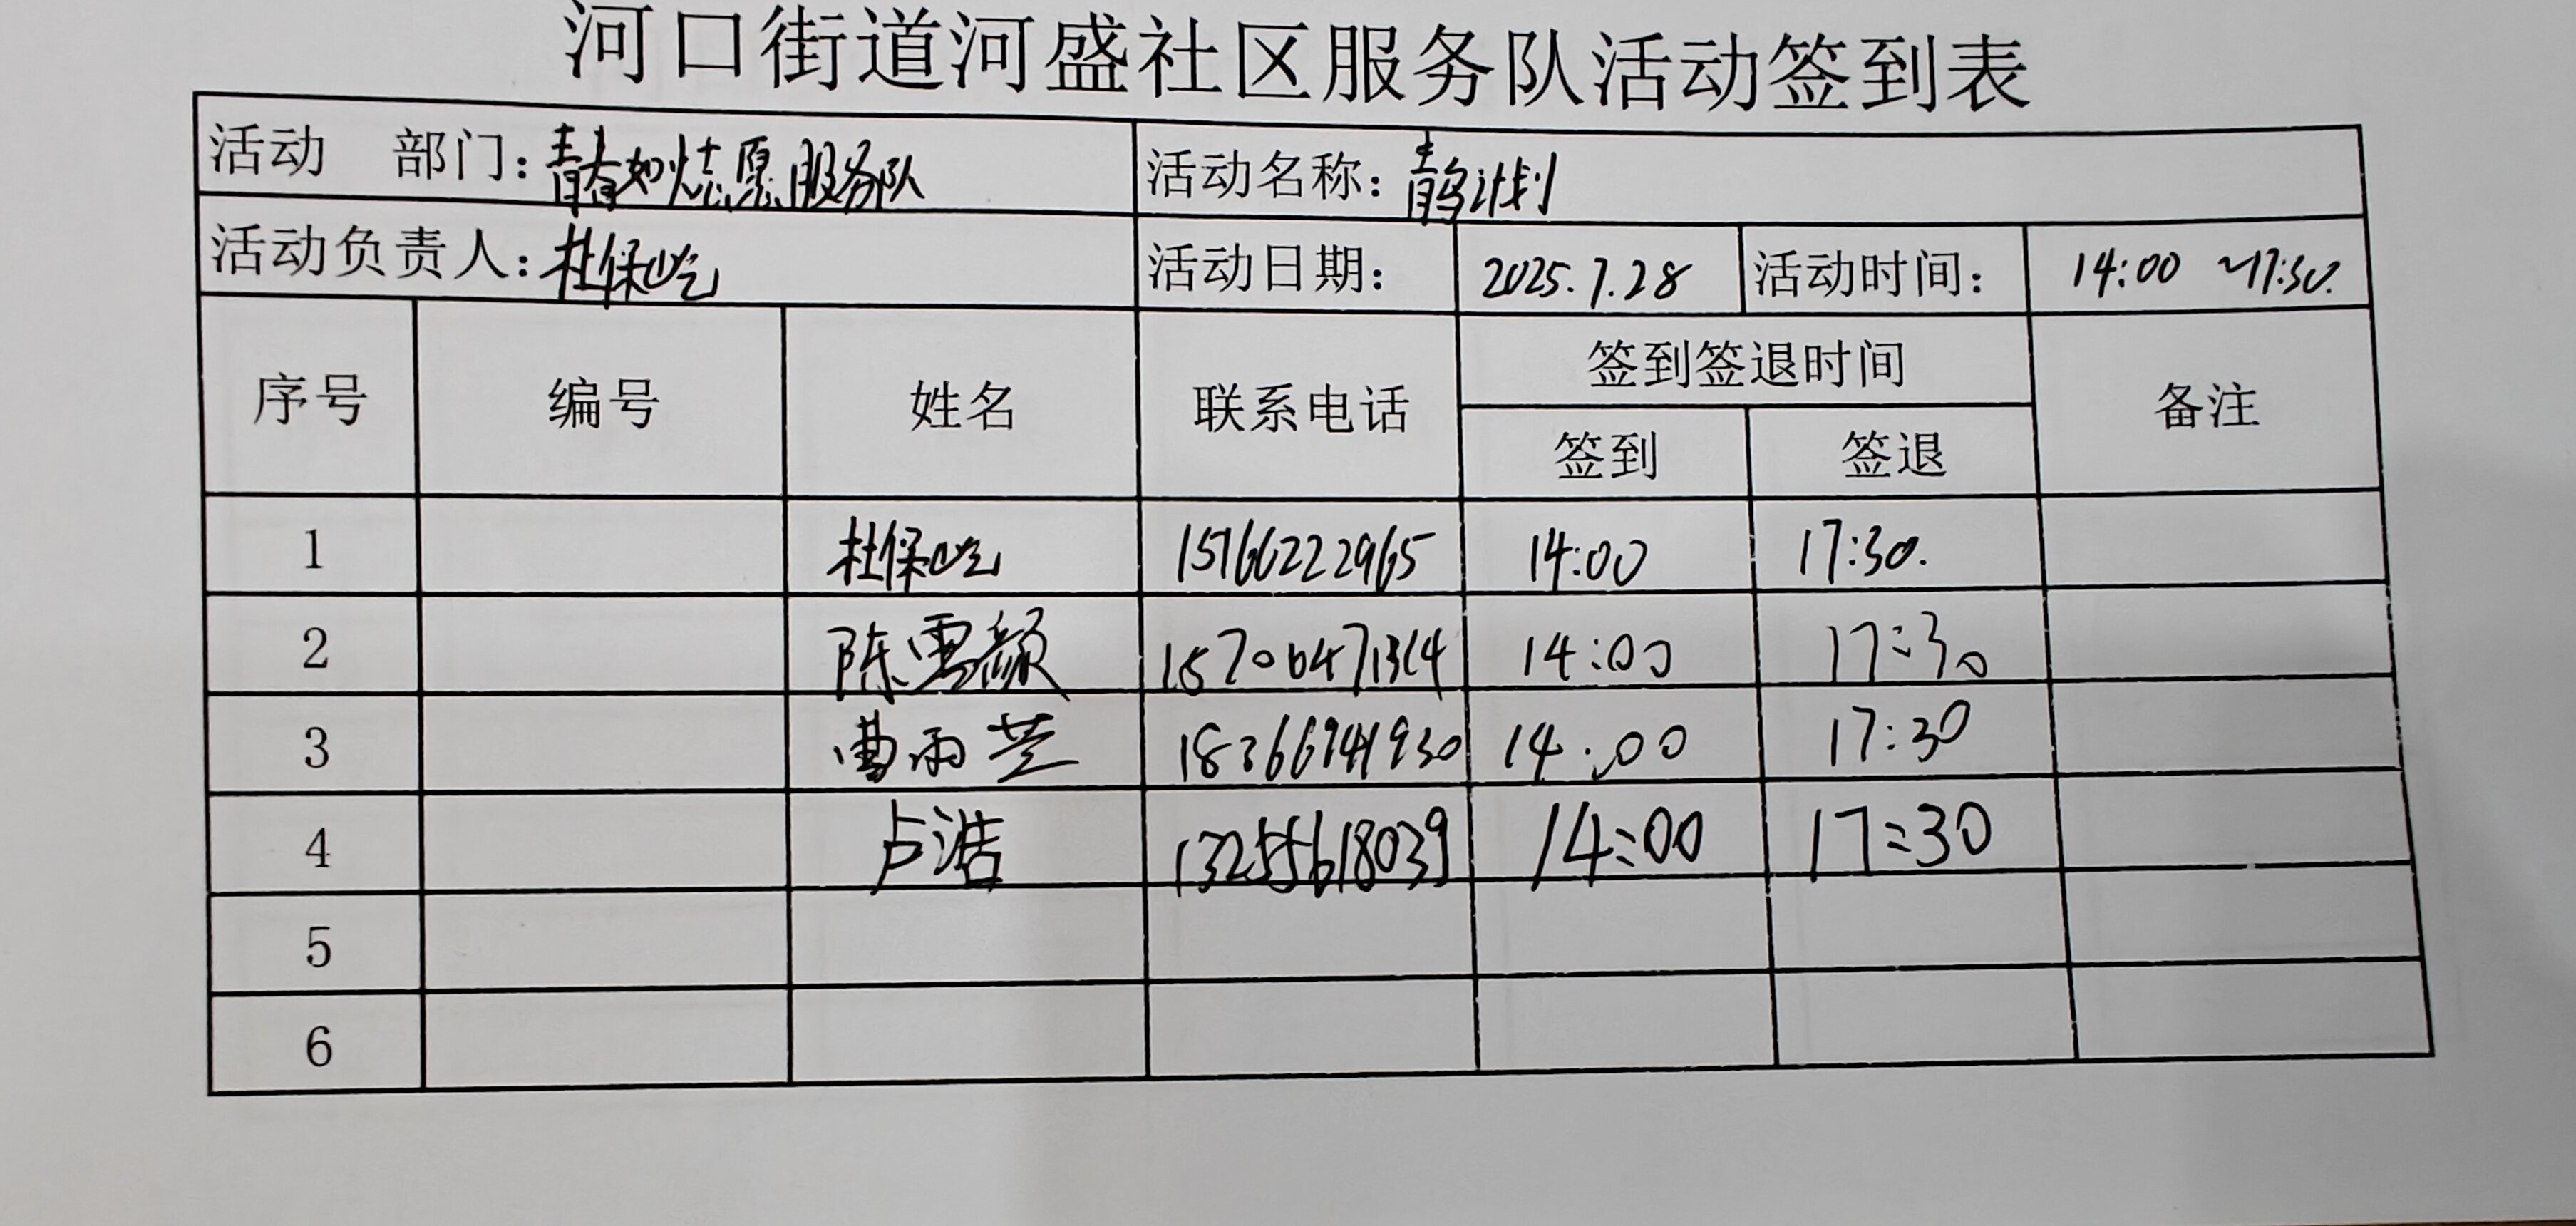 河口街道河盛社区服务队活动签到表
活动 部门：青春如志愿服务队 活动名称：青鸟计划
活动负责人：杜保屹 活动日期： 2025.7.28 活动时间： 14:00 ~17:30.
序号 编号 姓名 联系电话 签到签退时间 备注
签到 签退
1 杜保屹 15166222965 14:00 17:30.
2 陈雪颜 14:00 17:30
3 曹雨芝 14:00 17:30
4 卢浩 13255618039 14:00 17:30
5
6